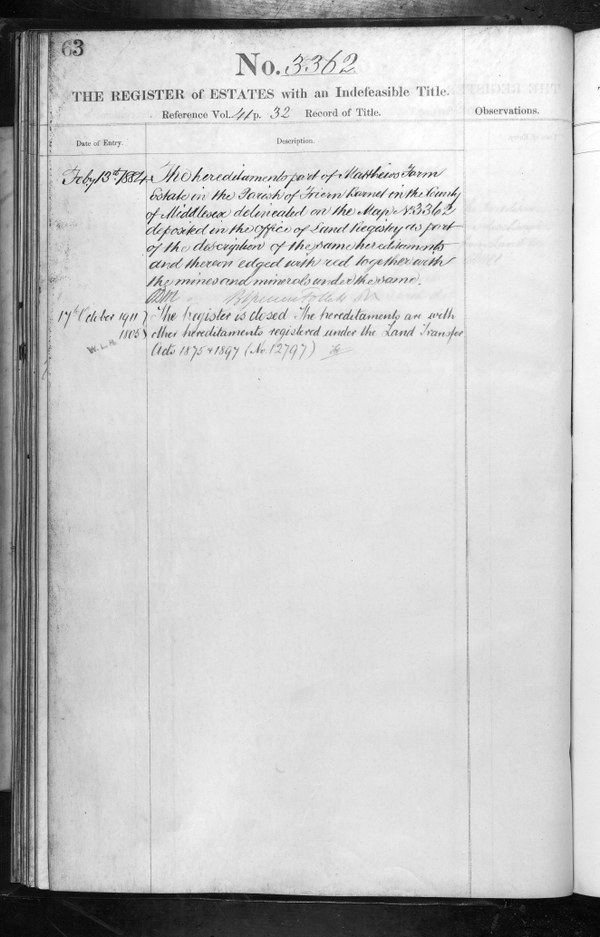 63
No. 3362
THE REGISTER of ESTATES with an Indefeasible Title.
Reference Vol. 4 p. 32 Record of Title.
Observations.
Date of Entry.
Description.
Feby 13th 1884
The hereditaments part of Matthews Farm
Estate in the Parish of Friern Barnet in the County
of Middlesex delineated on the Map No 3362
deposited in the Office of Land Registry as part
of the description of the same hereditaments
and therein edged with red together with
the mines and minerals under the same.
17th October 1911
1805
The register is closed The hereditaments are with
other hereditaments registered under the Land Transfer
Acts 1875 & 1897 (No. 12797)